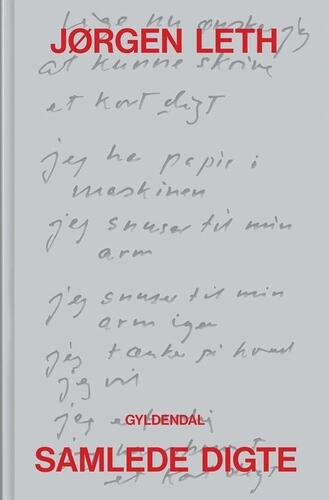 Lige nu ønsker jeg
JØRGEN LETH
at kunne skrive
et kort digt
jeg har papir i
maskinen
jeg snuser til min
arm
jeg snuser til min
arm igen
jeg tænker på hvad
jeg vil
GYLDENDAL
jeg
SAMLEDE DIGTE
et kort digt